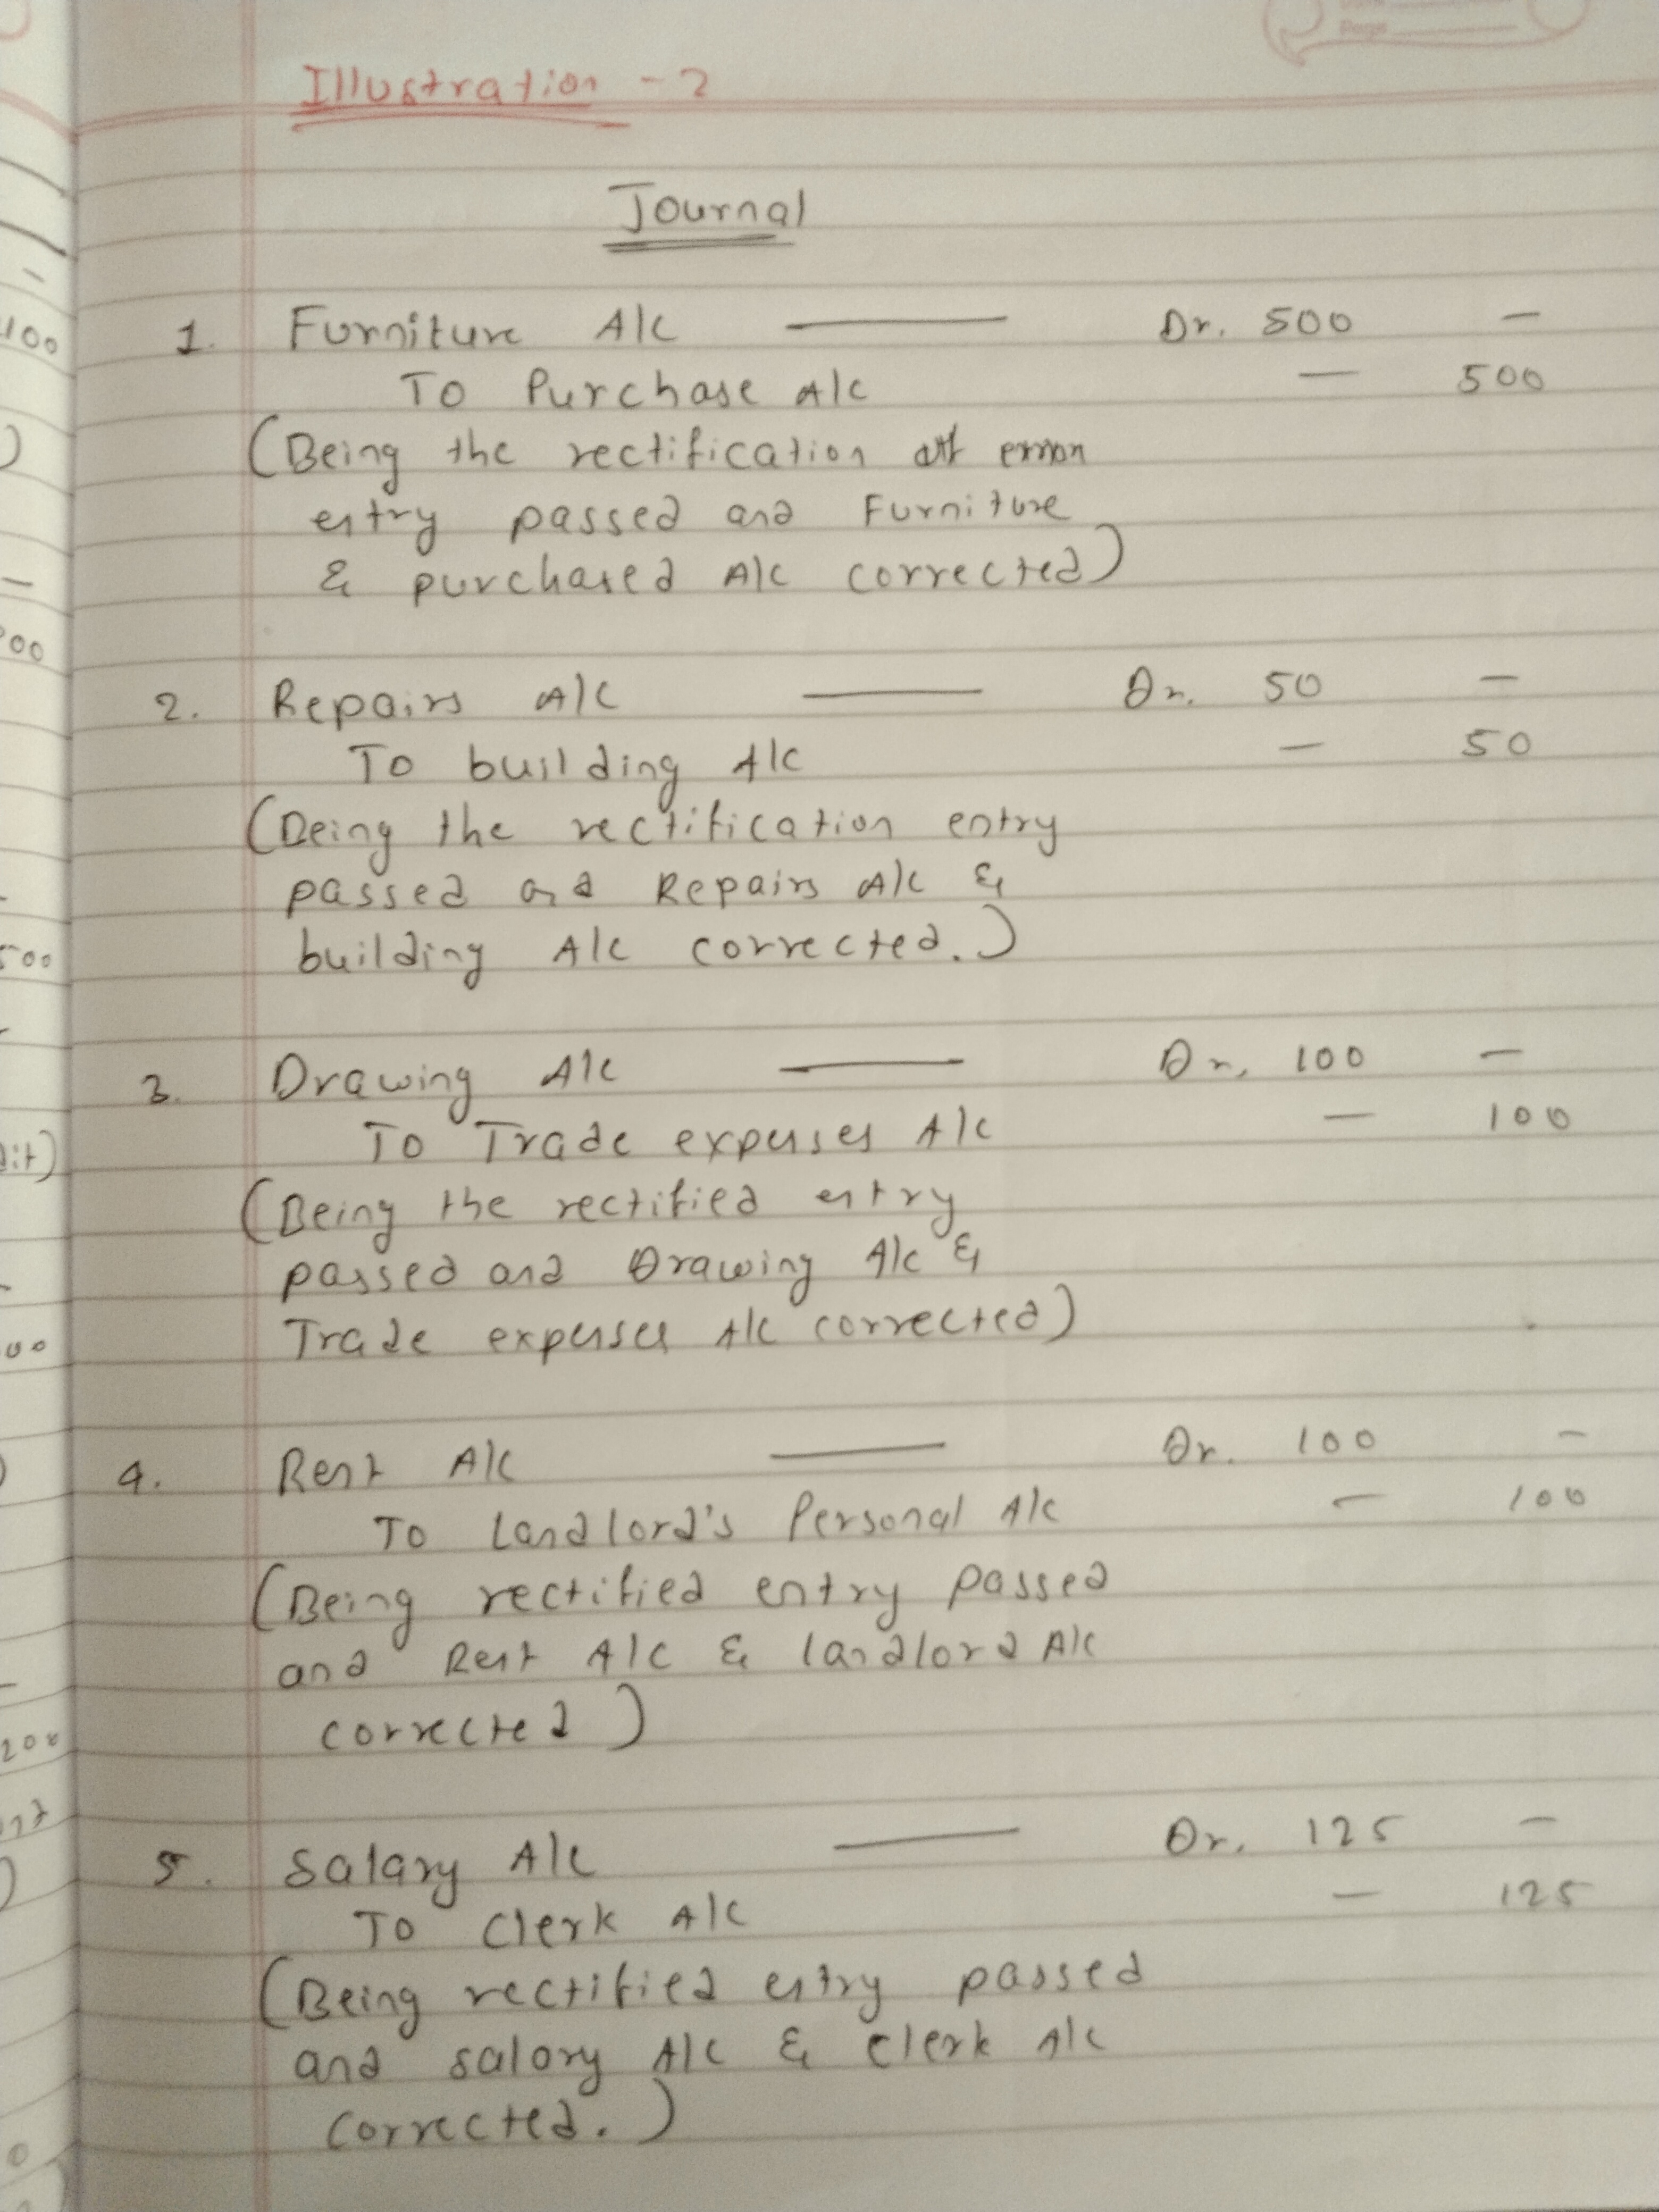 Page
Illustration - 2
Journal
1. Furniture A/c —— Dr. 500 —
To Purchase A/c — 500
(Being the rectification of error
entry passed and Furniture
& purchased A/c corrected)
2. Repairs A/c —— Dr. 50 —
To building A/c — 50
(Being the rectification entry
passed and Repairs A/c &
building A/c corrected.)
3. Drawing A/c —— Dr. 100 —
To Trade expenses A/c — 100
(Being the rectified entry
passed and Drawing A/c &
Trade expenses A/c corrected)
4. Rent A/c —— Dr. 100 —
To Landlord's Personal A/c — 100
(Being rectified entry passed
and Rent A/c & landlord A/c
corrected)
5. Salary A/c —— Dr. 125 —
To Clerk A/c — 125
(Being rectified entry passed
and salary A/c & clerk A/c
corrected.)